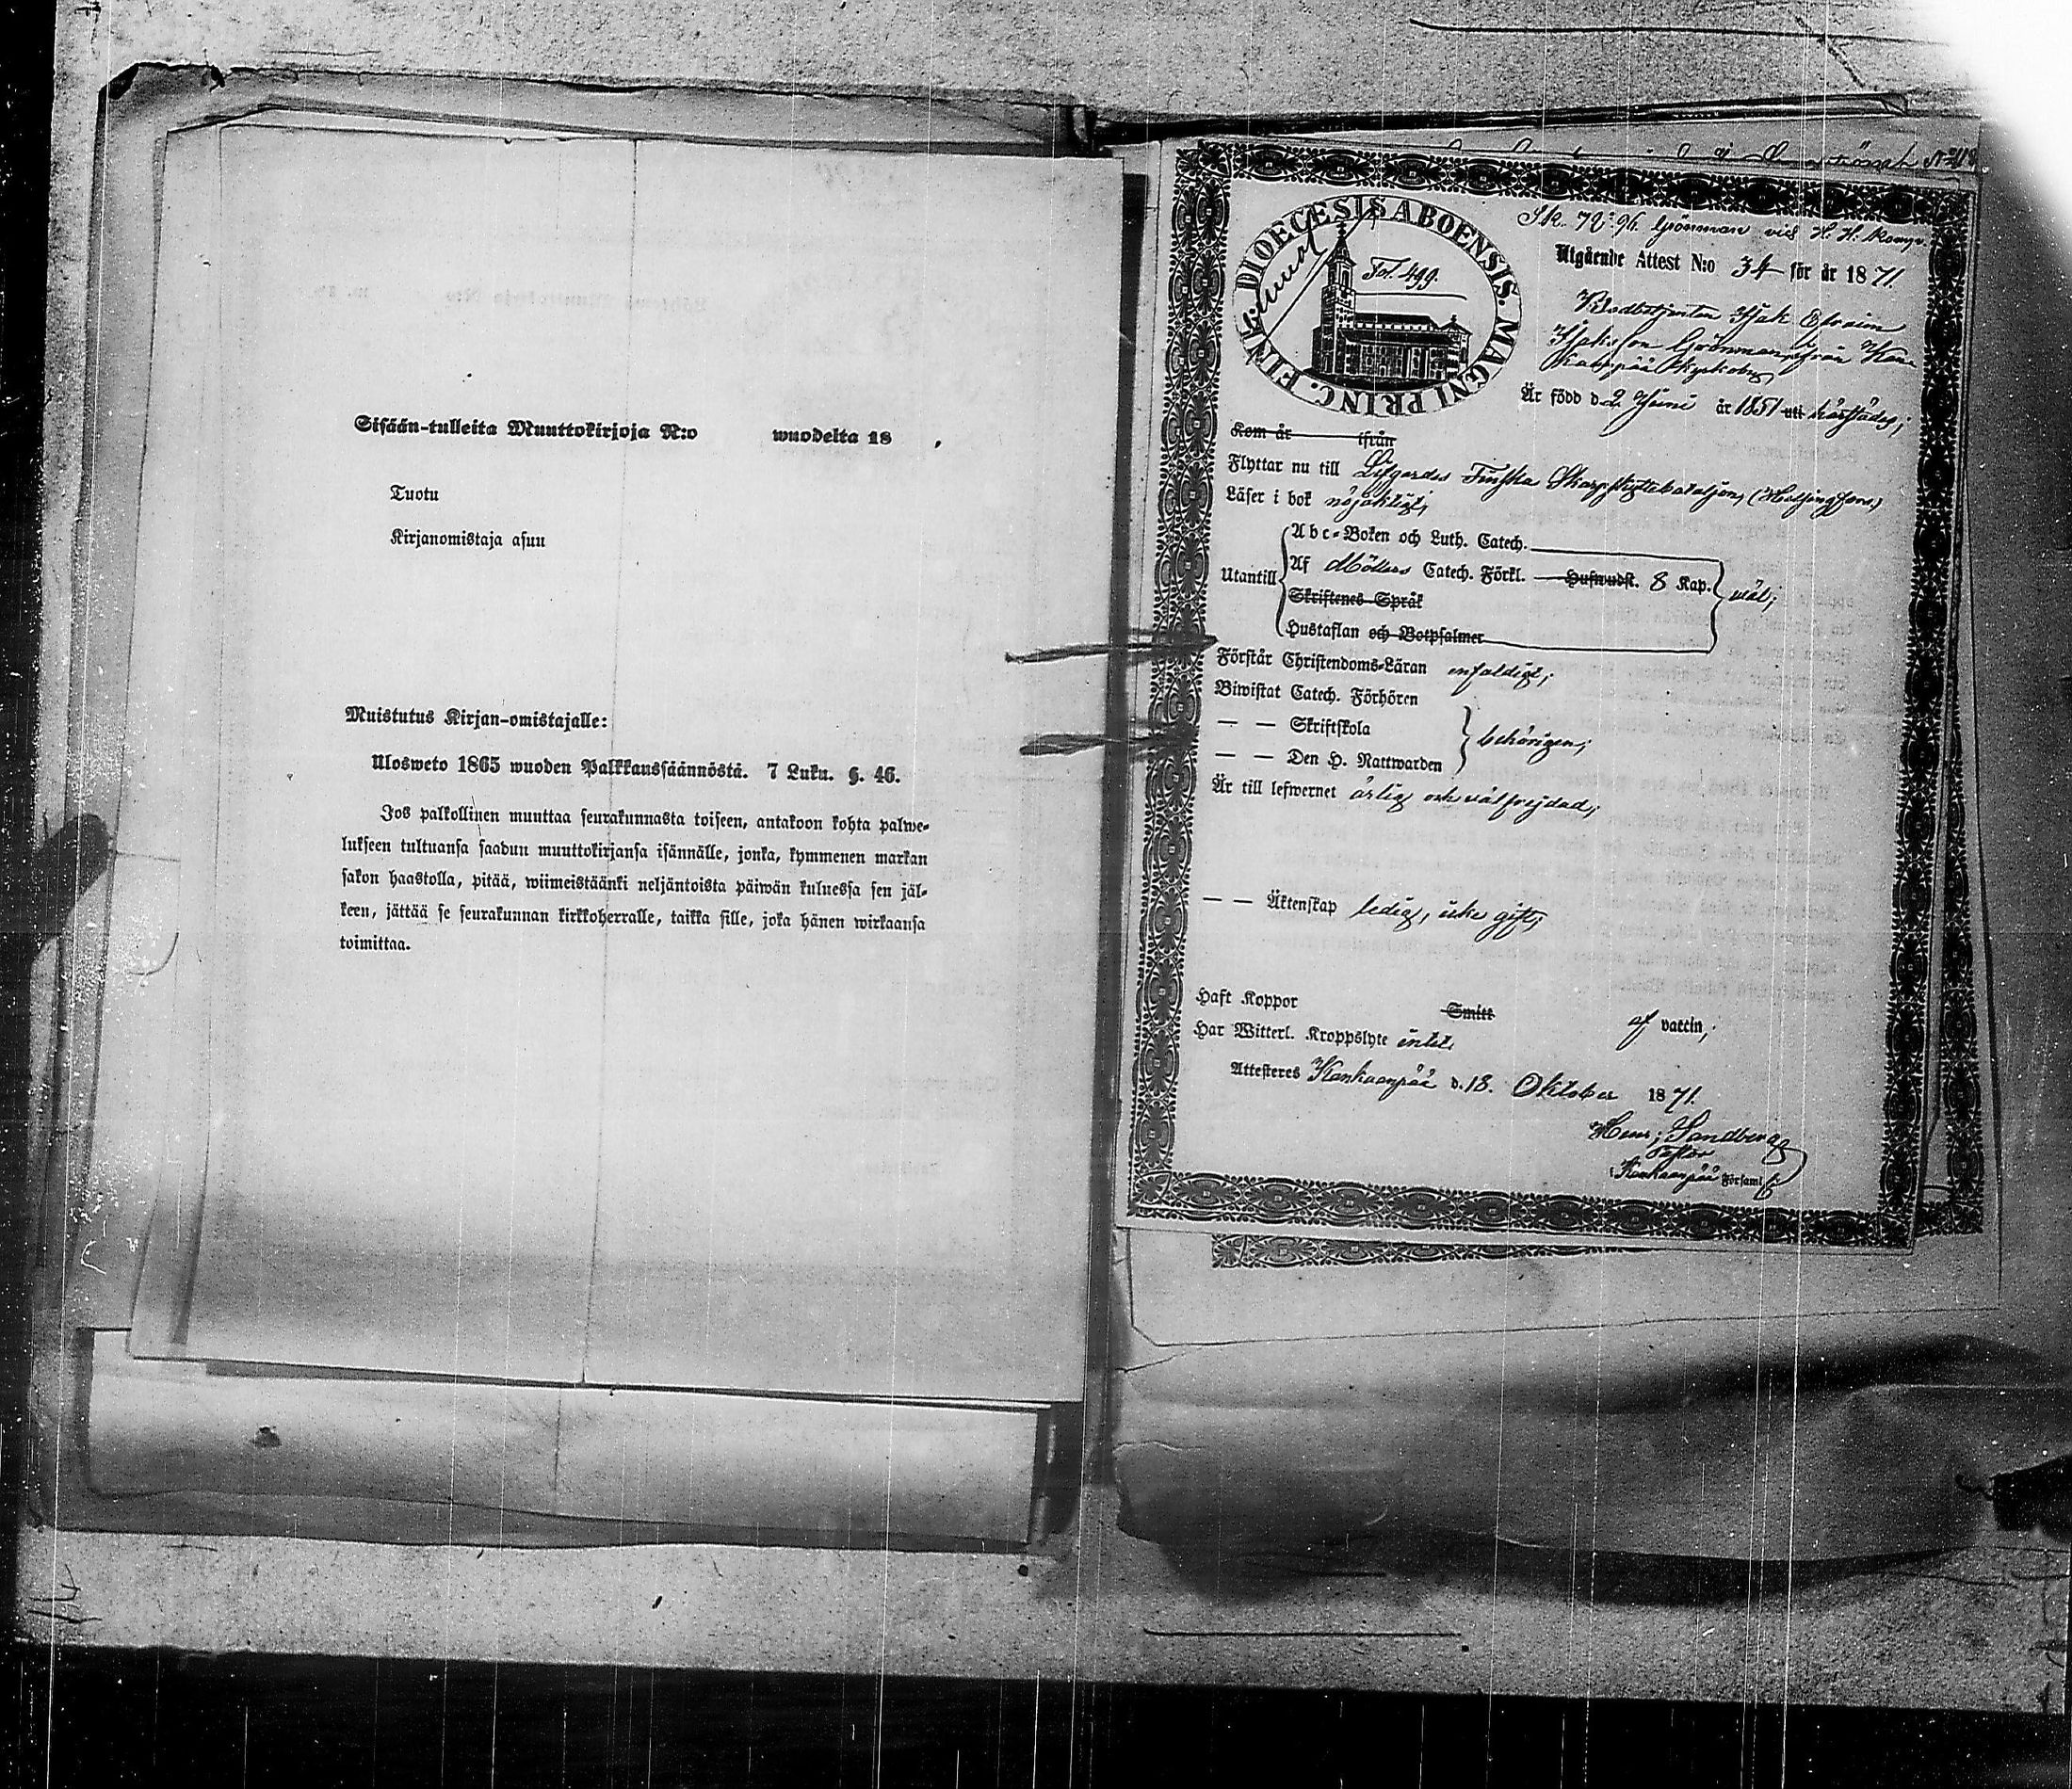 Sisään-tulleita Muuttokirjoja N:o wuodelta 18 .
Tuotu
Kirjanomistaja asuu
Muistutus Kirjan-omistajalle:
Ulosweto 1865 wuoden Palkkaussäännöstä. 7 Luku. §. 46.
Jos palkollinen muuttaa seurakunnasta toiseen, antakoon kohta palwe-
lukseen tultuansa saadun muuttokirjansa isännälle, jonka, kymmenen markan
sakon haastolla, pitää, wiimeistäänki neljäntoista päiwän kuluessa sen jäl-
keen, jättää se seurakunnan kirkkoherralle, taikka sille, joka hänen wirkaansa
toimittaa.
DIOECESIS ABOENSIS. MAGNI PRINC. FINL.
Fol. 499.
Sk. 72: 96. Grönman vid H. H.
Utgående Attest N:o 34 för år 1871.
Bodbetjenten Isak Efraim
Isaksson Grönman från Kan-
kaanpää Kyrkoby
Är född d. 2 Juni år 1851 uti härstädes;
Kom år ifrån
Flyttar nu till Lifgardes Finska Skarpskyttebataljon, (Helsingfors)
Läser i bok nöjaktigt;
Utantill
Abc-Boken och Luth. Catech.
Af Möllers Catech. Förkl. Hufwudst. 8 Kap. wäl;
Skriftenes Språk
Hustaflan och Botpsalmer
Förstår Christendoms-Läran enfaldigt;
Biwistat Catech. Förhören
— — Skriftskola behörigen;
— — Den H. Nattwarden
Är till lefwernet ärlig och välfrejdad;
— — Äktenskap ledig, icke gift;
Haft Koppor Smitt af vaccin;
Har Witterl. Kroppslyte intet.
Attesteres Kankaanpää d. 18. Oktober 1871.
Henr; Sandberg
Pastor
i Kankaanpää Församl